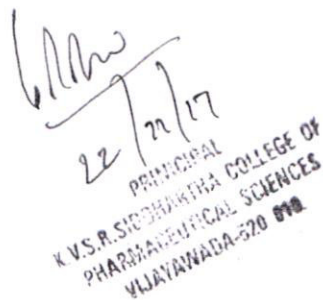 22/22/17
PRINCIPAL
K.V.S.R.SIDDHARTHA COLLEGE OF
PHARMACEUTICAL SCIENCES
VIJAYAWADA-520 010